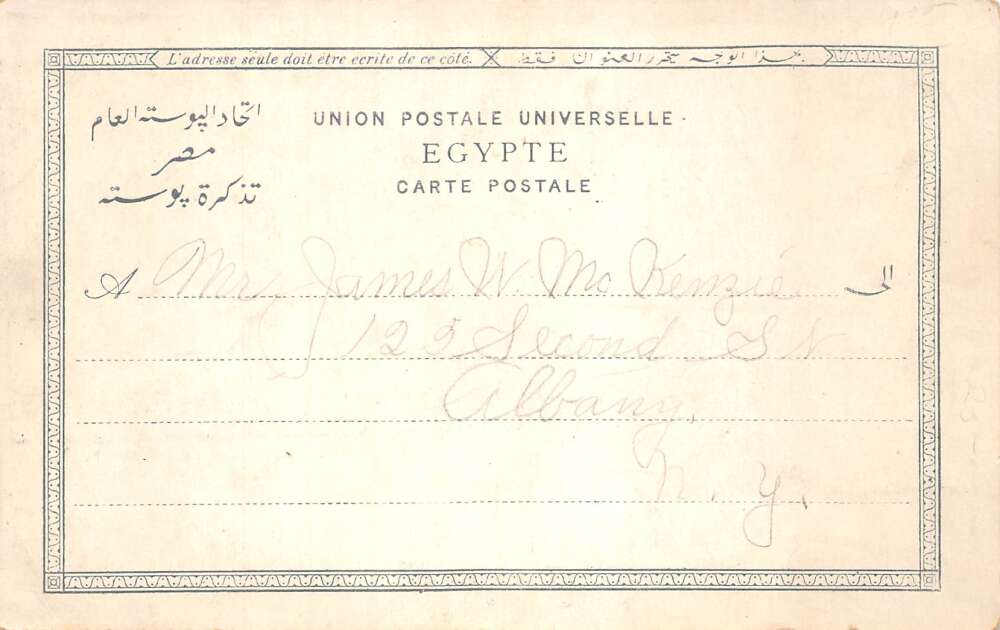 L'adresse seule doit être ecrite de ce côté.
بهذا الوجه يتحرر العنوان فقط
اتحاد البوسته العام
مصر
تذكرة بوسته
UNION POSTALE UNIVERSELLE.
EGYPTE
CARTE POSTALE
A Mr James W. Mc Kenzie الى
125 Second St
Albany,
N. Y.